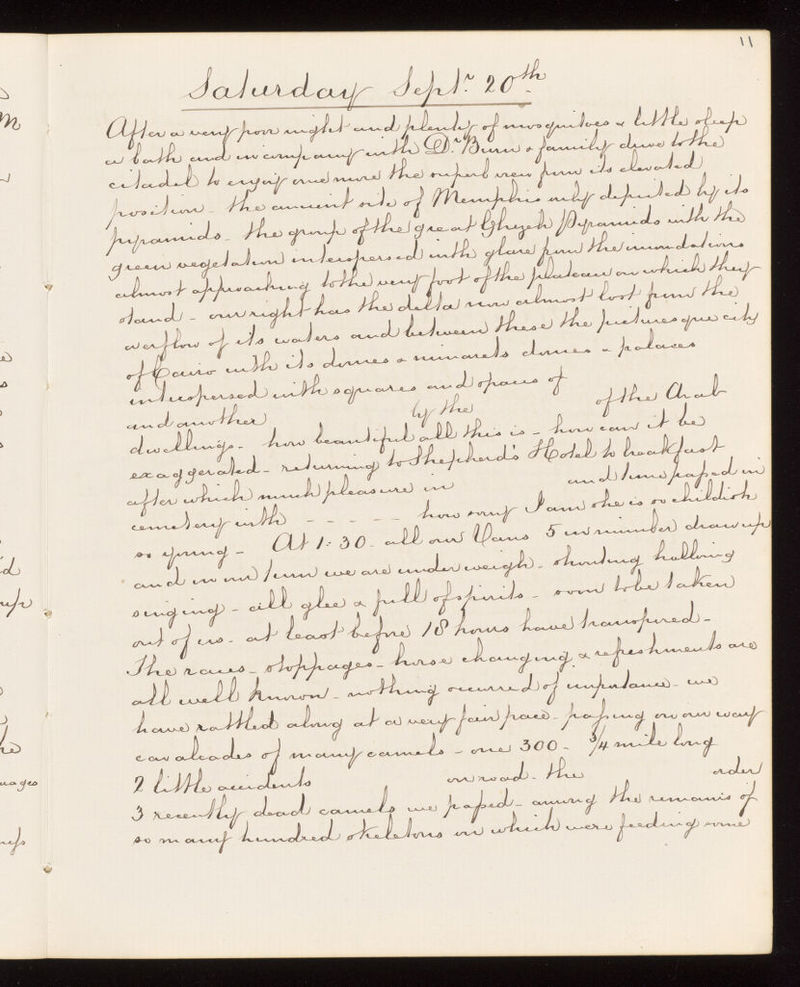 11
Saturday Septr. 20th
After a very poor night and plenty of mosquitoes & little sleep
a bath and in company with Dr. Burn & family drive to the
citadel to enjoy once more the superb view from its elevated
position - the ancient site of Memphis only depicted by its
pyramids - the group of the great Ghyzeh Pyramids with the
green vegetation interspersed with glare from the inundations
almost approaching to the very foot of the plateau on which they
stand - our right has the delta now almost lost from the
overflow of its waters and between these the picturesque city
of Cairo with its domes & minarets domes & palaces
interspersed with squares and spaces of
and another by the of the Arab
dwellings - how beautiful all this is - how can it be
exaggerated - returning to Shepherd's Hotel to breakfast
after which much pleasure in and time passed in
cemetery with - - - - - how sorry I am she is so childish
so young - At 1:30 - all our Vans 5 in number draw up
and in our turn we are under weigh - shouting halloing
singing - all glee & full of spirits - soon to be taken
out of us - at least before 18 hours have transpired -
The races - stoppages - horse changing & refreshments are
all well known - nothing occurred of importance - we
have rattled along at a very fair pace - passing on our way
cavalcades of many camels - one 300 - 3/4 mile long
2 little accidents on road - the order
3 recently dead camels we passed - among the remains of
so many hundred skeletons on which were feeding some